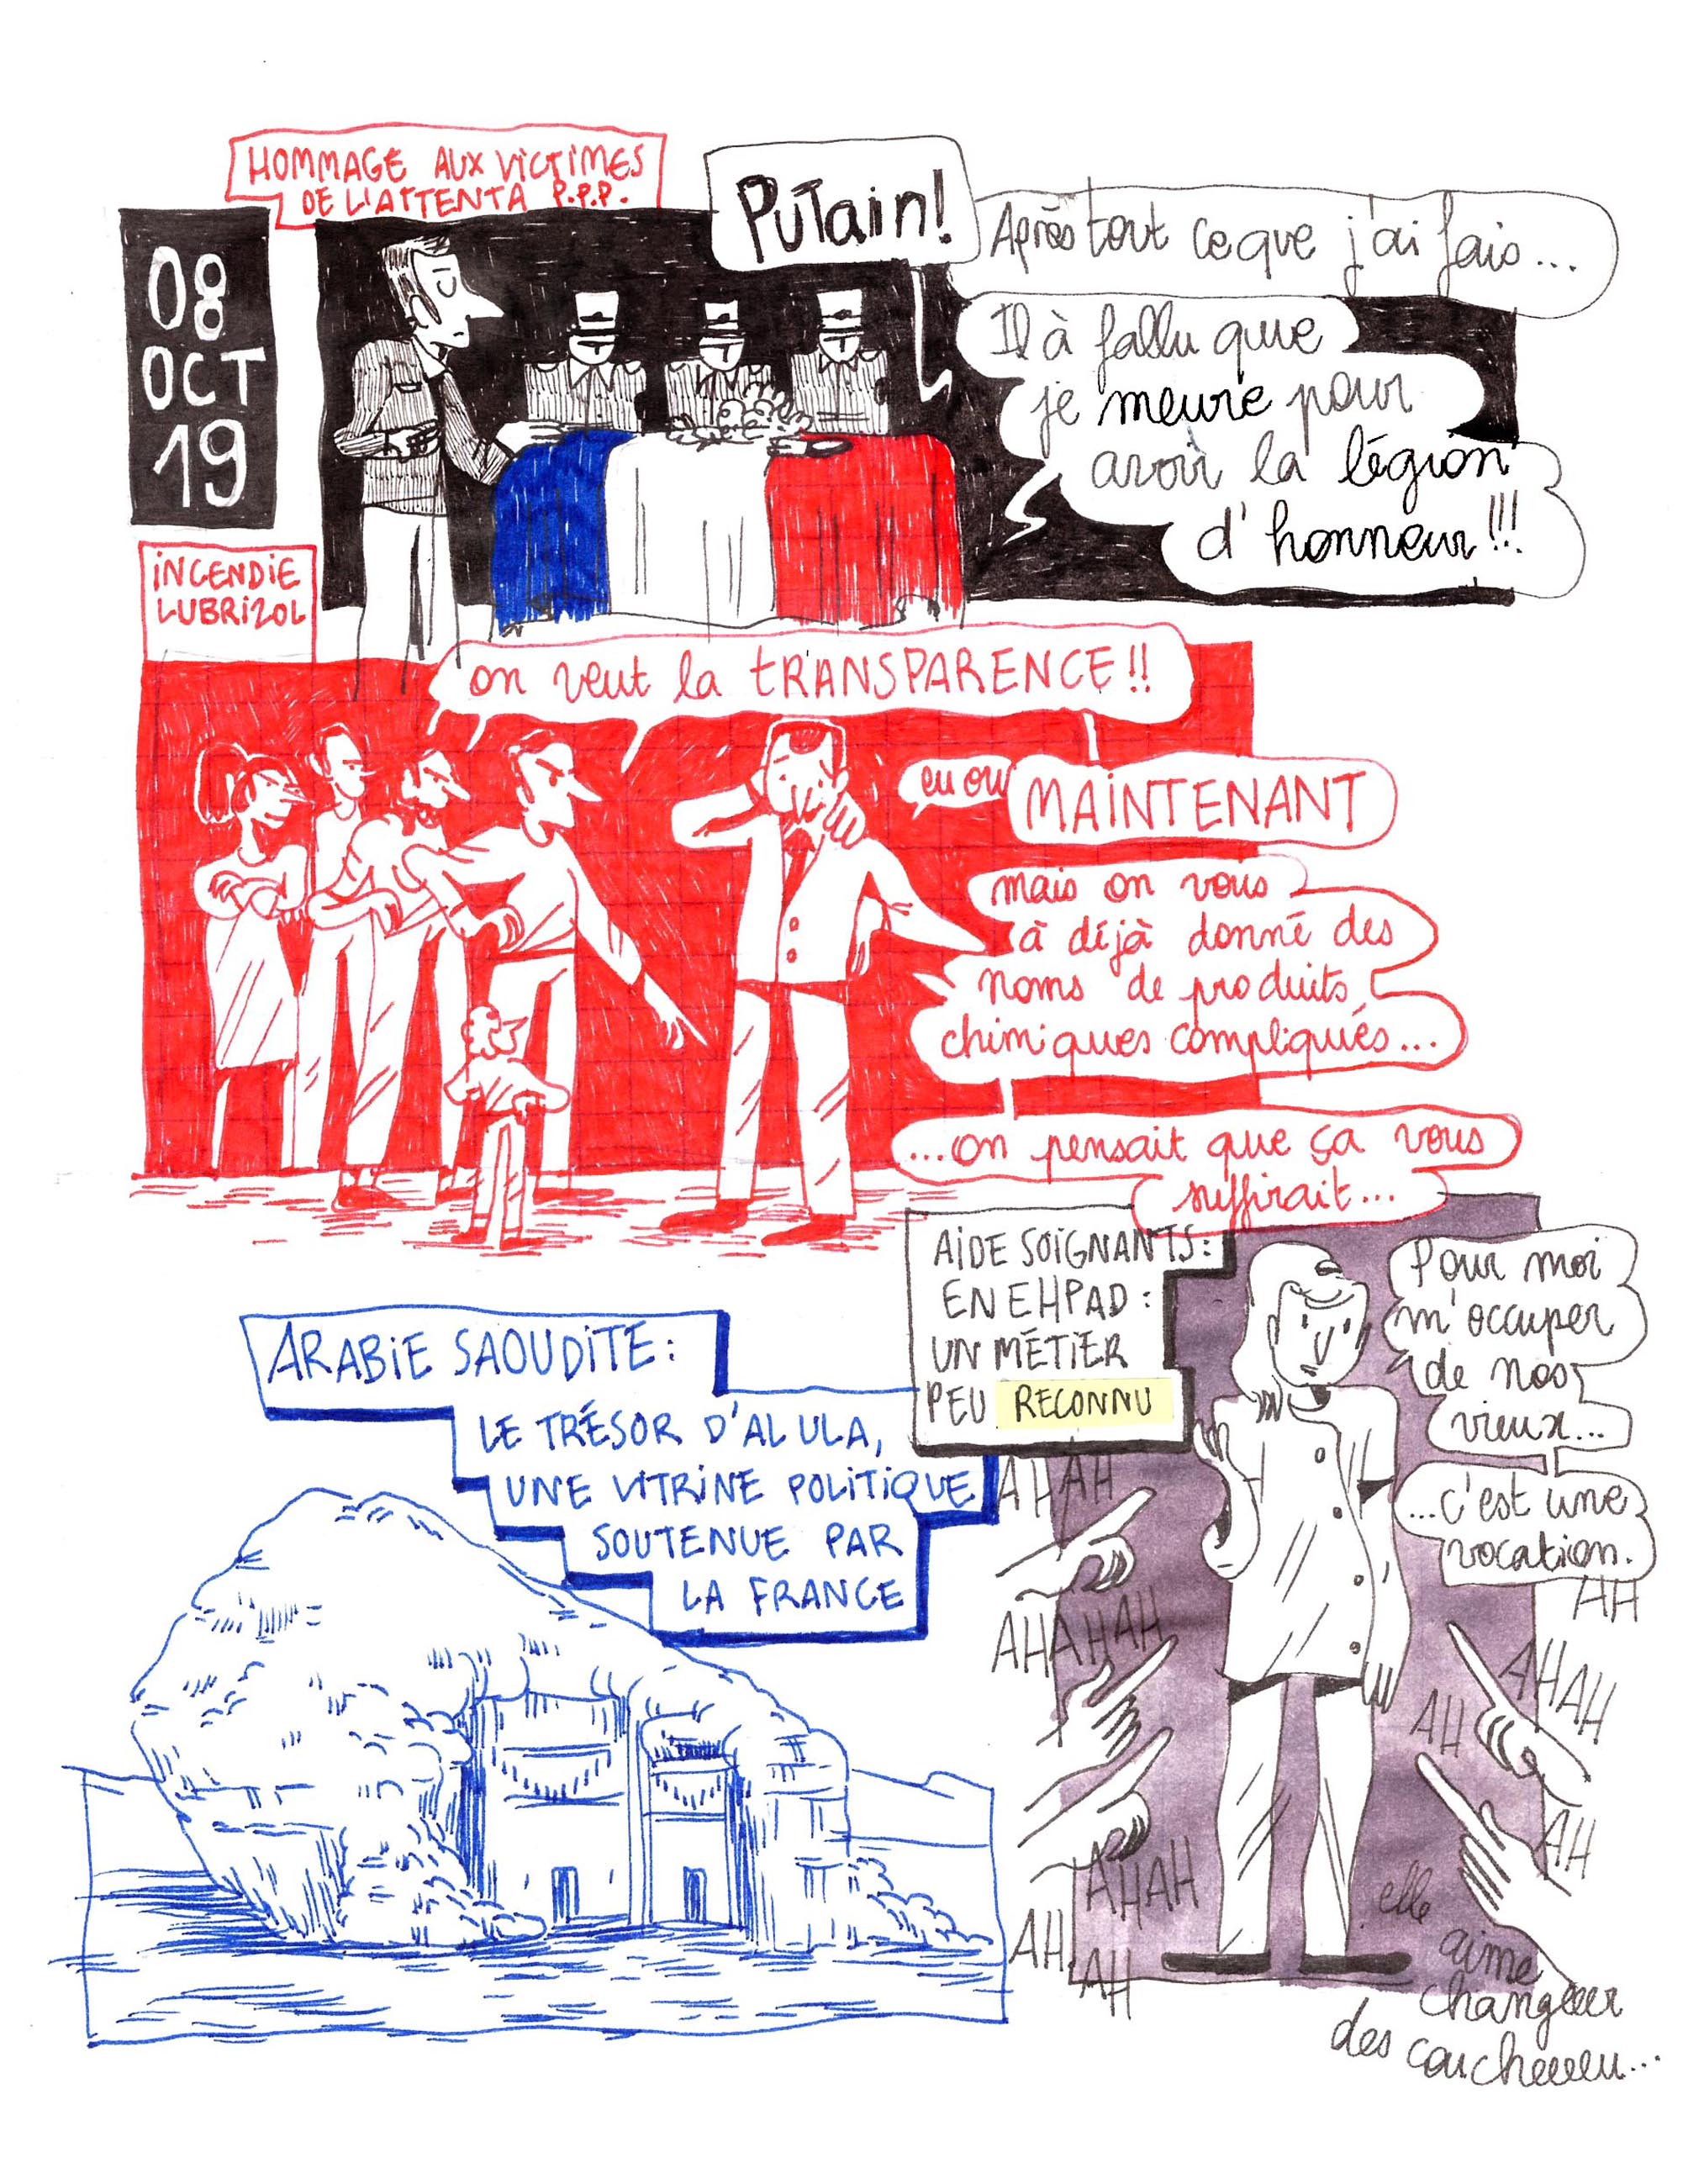 HOMMAGE AUX VICTIMES
DE L'ATTENTA P.P.P.
08
OCT
19
PUTain!
Après tout ce que j'ai fais...
Il à fallu que
je meure pour
avoir la légion
d'honneur!!!
INCENDIE
LUBRIZOL
on veut la TRANSPARENCE!!
eu oui
MAINTENANT
mais on vous
à déjà donné des
noms de produits
chimiques compliqués...
...on pensait que ça vous
suffirait...
AIDE SOIGNANTS:
EN EHPAD:
UN MÉTIER
PEU RECONNU
Pour moi
m'occuper
de nos
vieux...
...c'est une
vocation.
ARABIE SAOUDITE:
LE TRÉSOR D'AL ULA,
UNE VITRINE POLITIQUE
SOUTENUE PAR
LA FRANCE
AHAH
AHAHAH
AHAH
AH
AH
AH
AHAH
AH
AH
elle
aime
changeeer
des coucheeeeu...